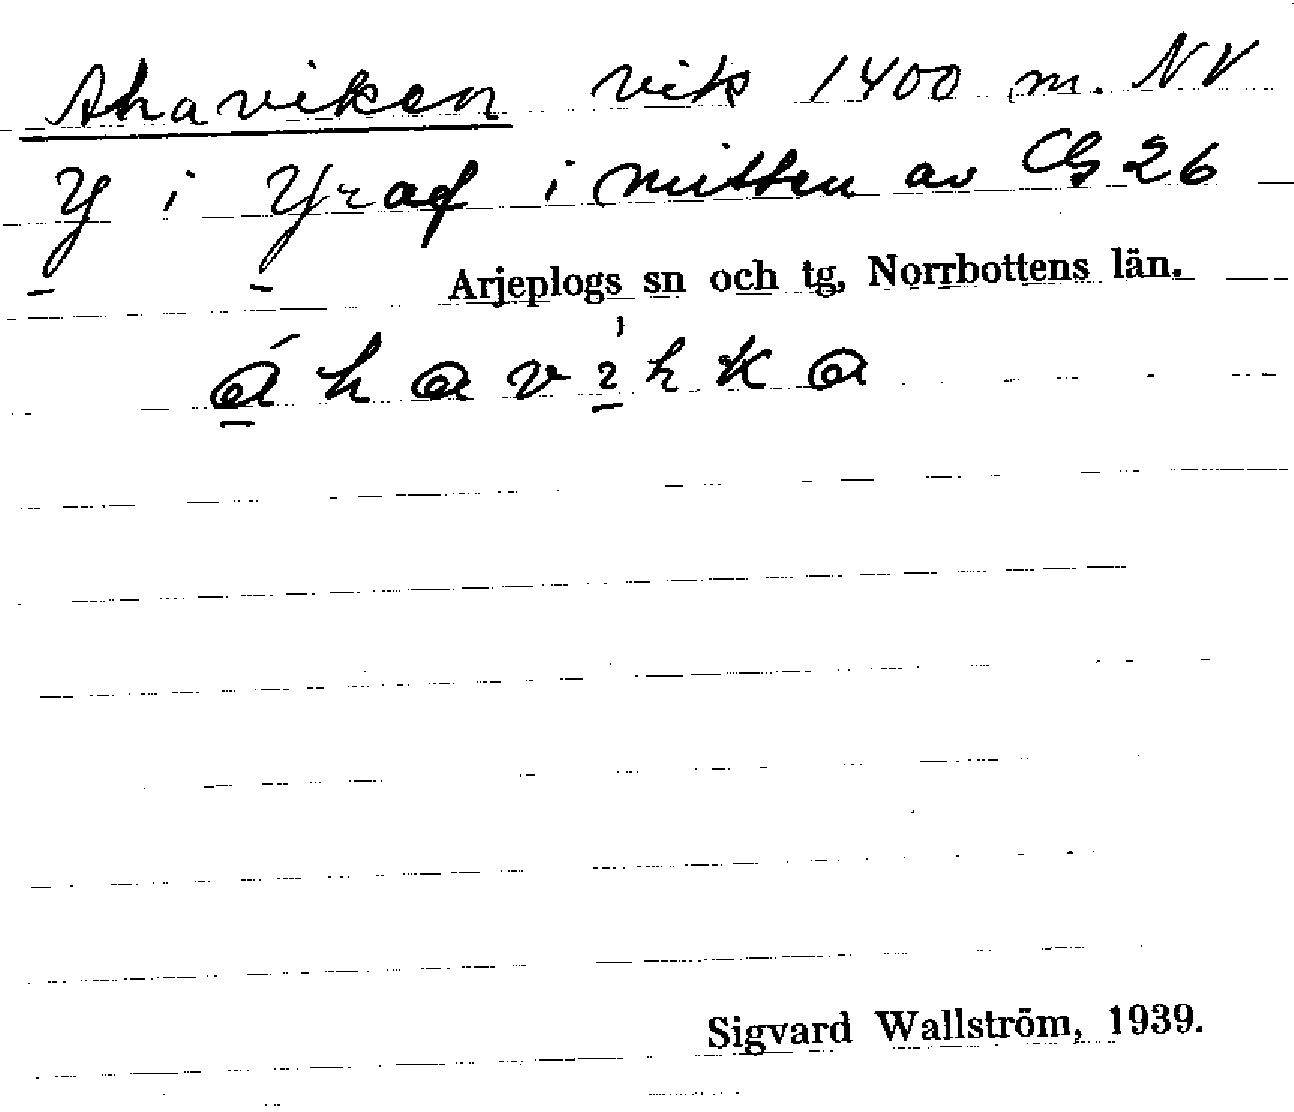 Ahaviken vik 1400 m. NV
Y i Yraf i mitten av CG 26
Arjeplogs sn och tg, Norrbottens län.
áhavihka
Sigvard Wallström, 1939.